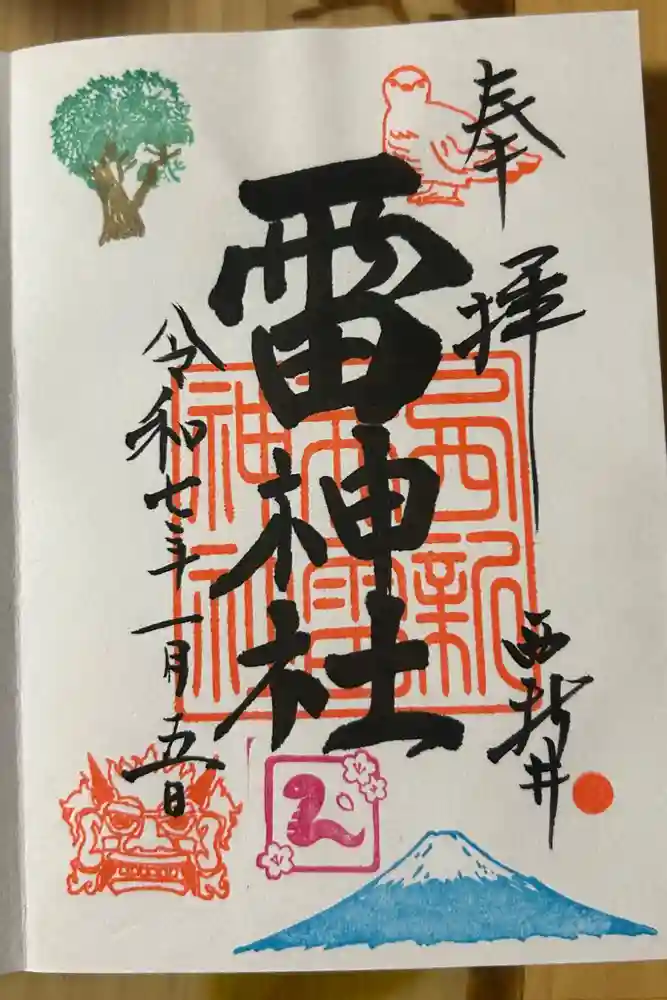 奉拝
西新井
雷神社
令和七年一月五日
西新井雷神社